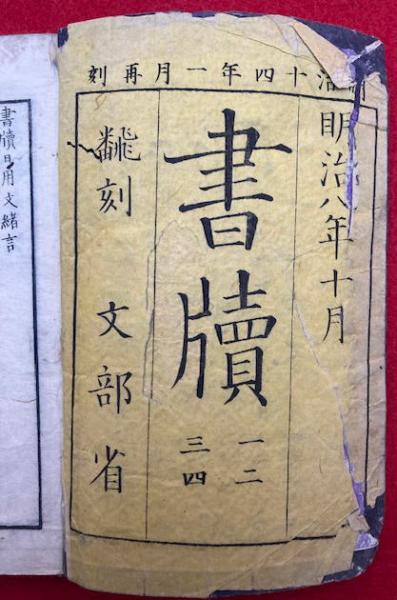 明治十四年一月再刻
明治八年十月
書牘
一二
三四
飜刻 文部省
書牘日用文緒言